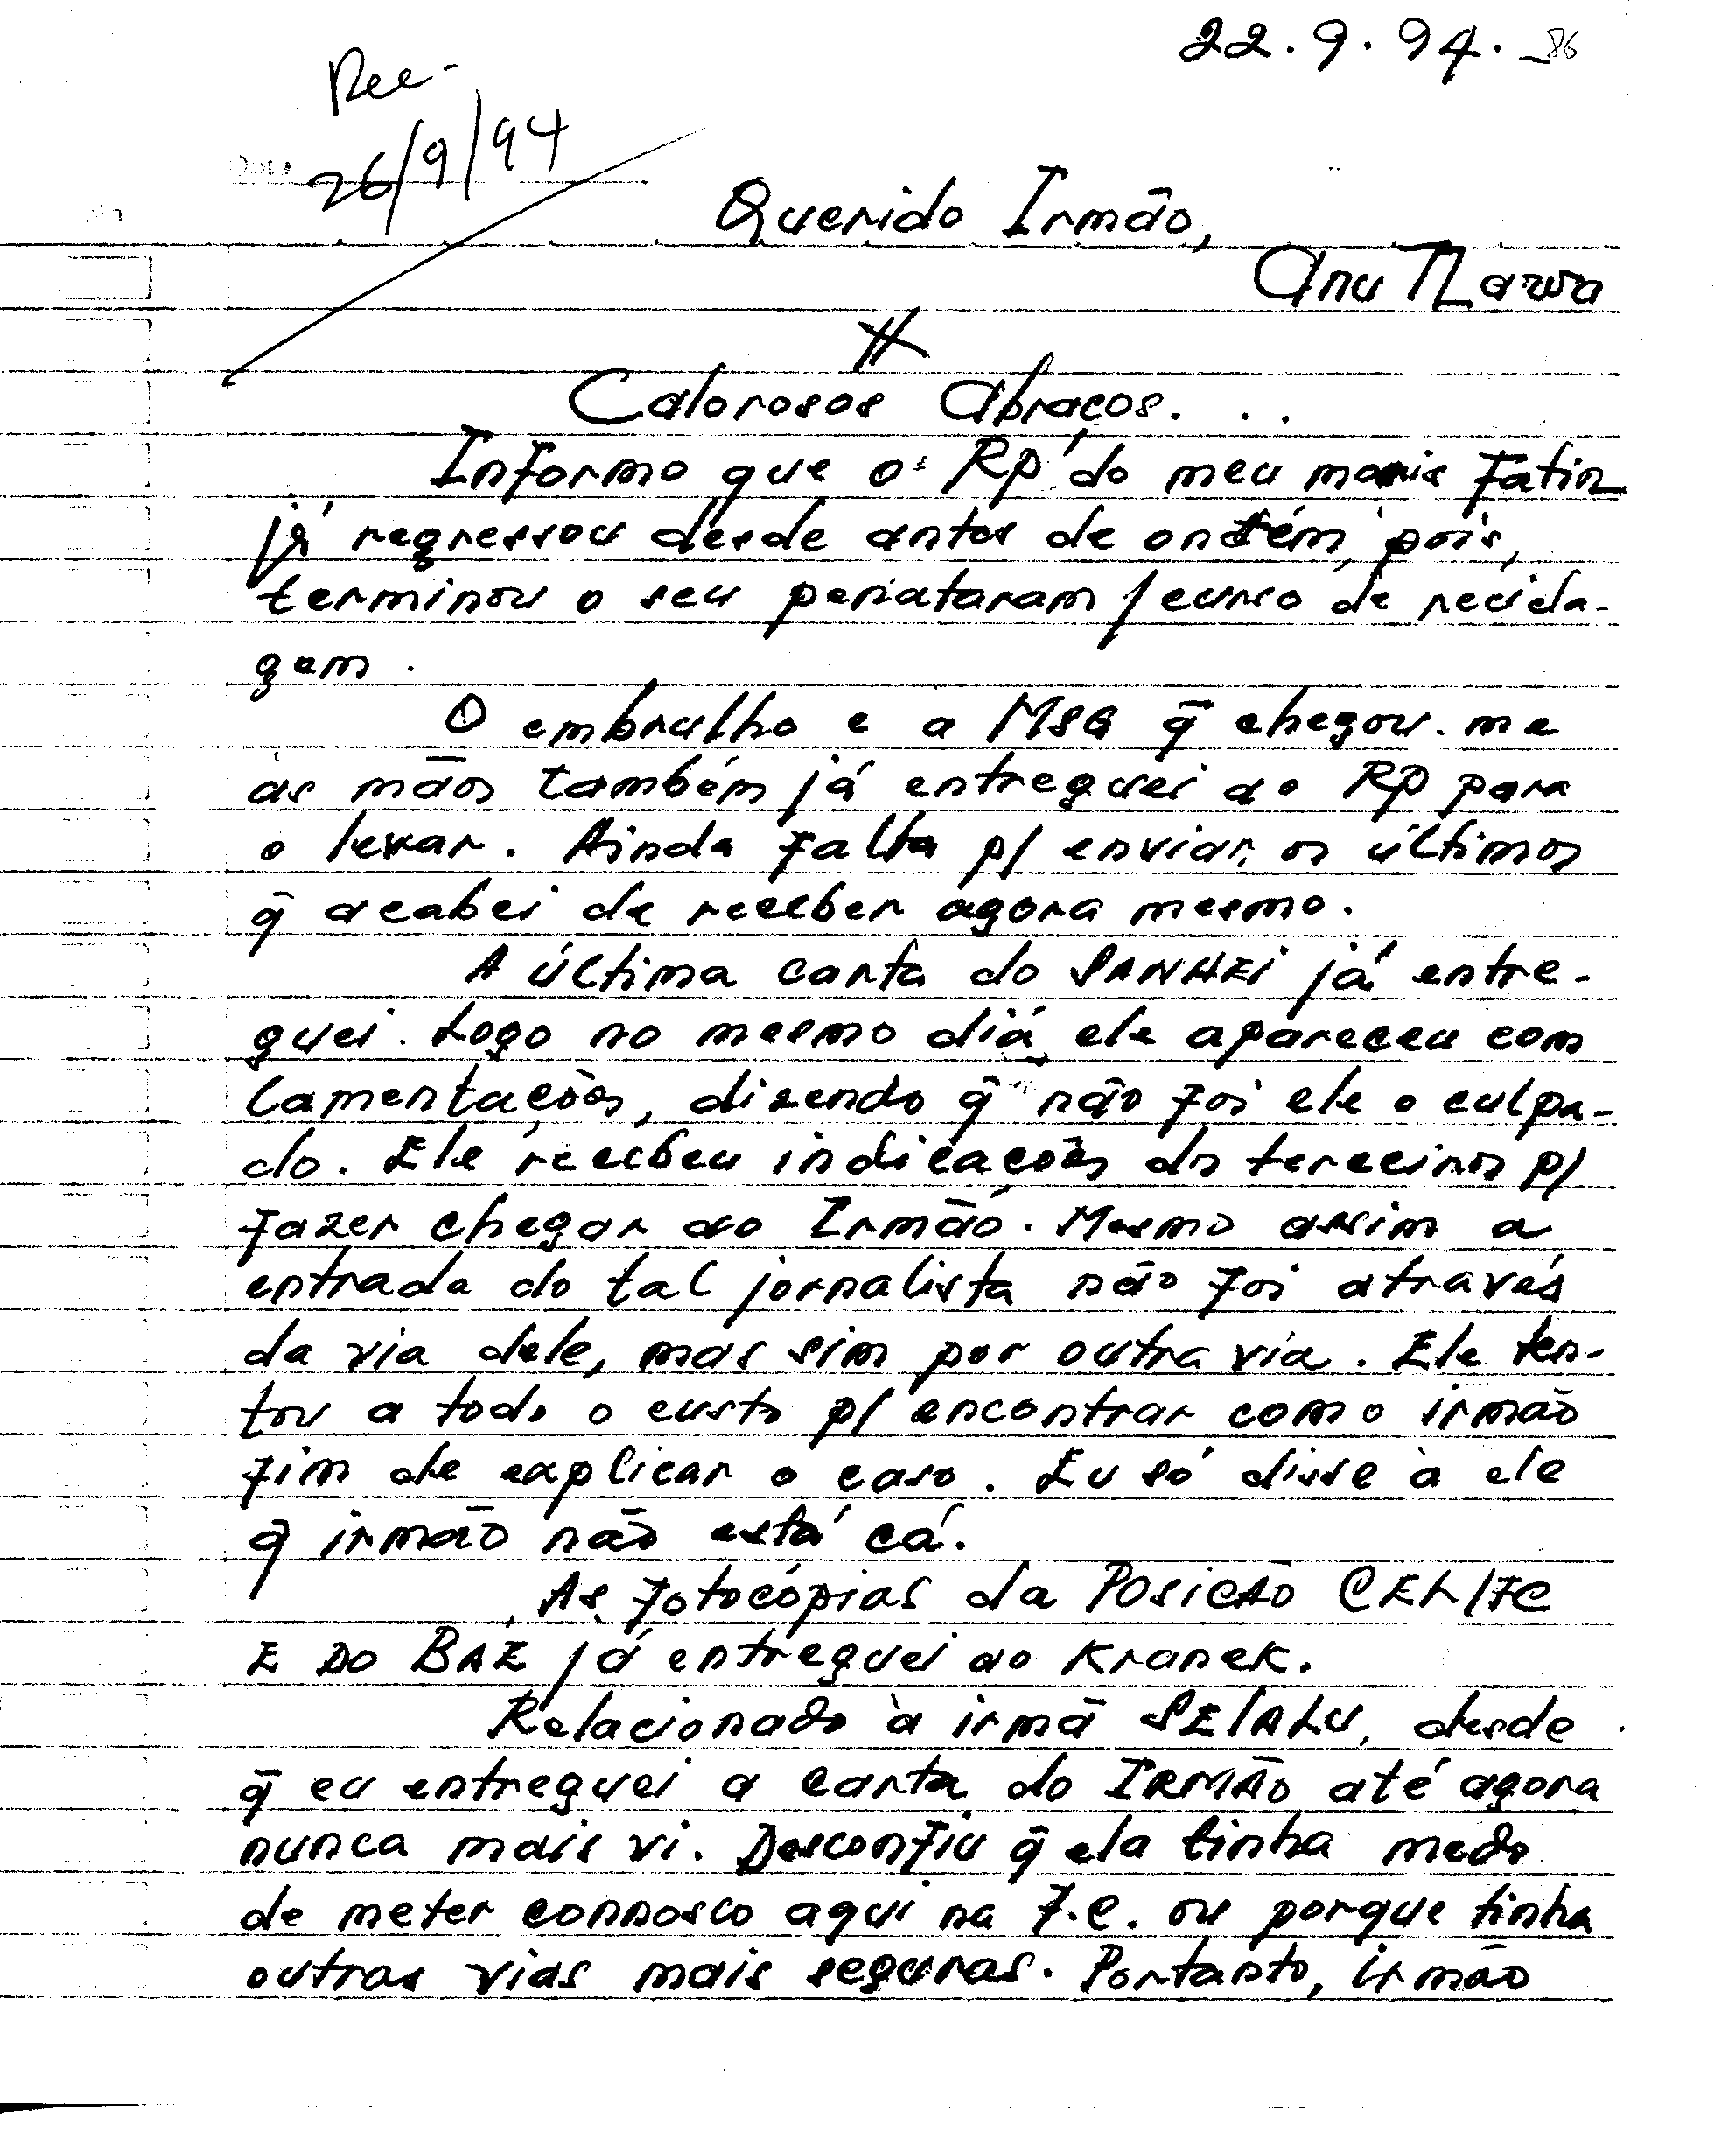 22.9.94. 86
Rec.
26/9/94
Querido Irmão,
Anu
Calorosos Abraços...
Informo que o RP do meu Fatin
já regressou desde antes de ontém, pois,
terminou o seu penataram/curso de recicla-
gem.
O embrulho e a MSG q̄ chegou-me
às mãos também já entreguei ao RP para
o levar. Ainda falta p/ enviar, os últimos
q̄ acabei de receber agora mesmo.
A última carta do SANHEI já entre-
guei. Logo no mesmo diá ele apareceu com
lamentações, dizendo q̄ não foi ele o culpa-
do. Ele recebeu indicações dos terceiros p/
fazer chegar ao Irmão. Mesmo assim a
entrada do tal jornalista não foi através
da via dele, mas sim por outra via. Ele ten-
tou a todo o custo p/ encontrar com o irmão
fim de explicar o caso. Eu só disse à ele
q̄ irmão não está cá.
As fotocópias da POSIÇÃO CEL/FC
E DO BAE já entreguei ao Kranek.
Relacionado à irmã SEIALU, desde
q̄ eu entreguei a carta do IRMÃO até agora
nunca mais vi. Desconfiu q̄ ela tinha medo
de meter connosco aqui na F.C. ou porque tinha
outras vias mais seguras. Portanto, irmão